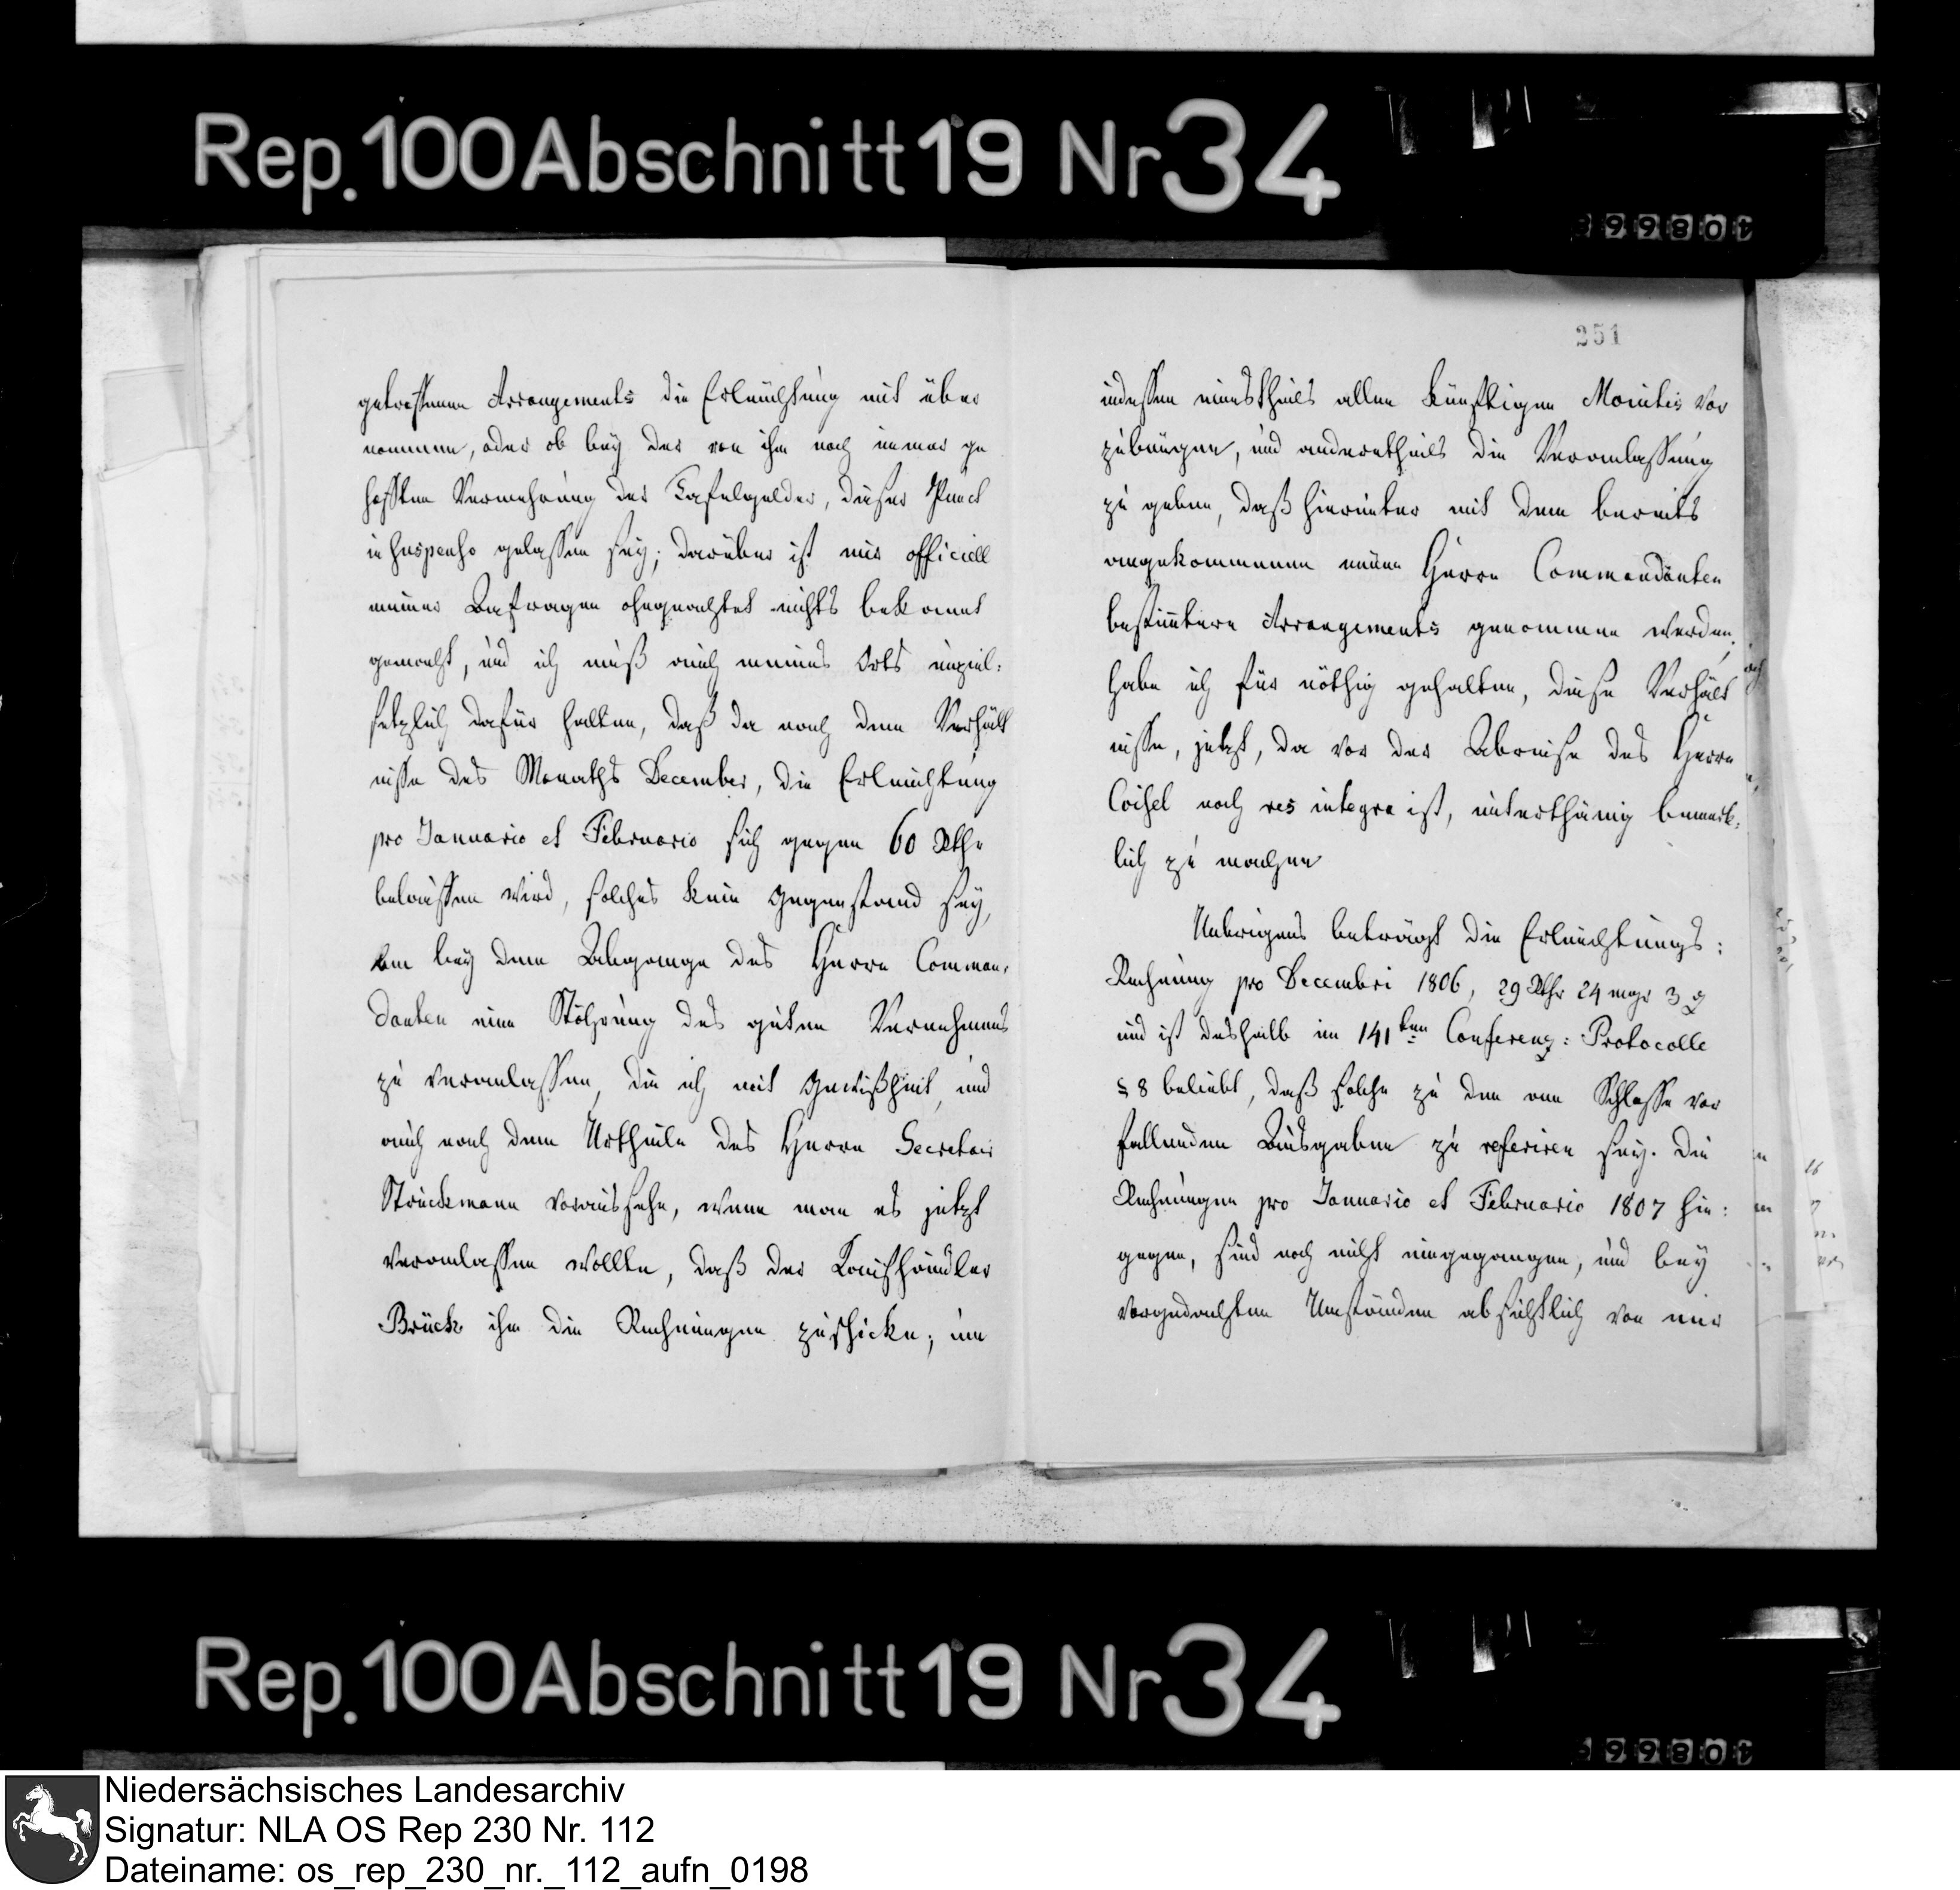 Rep. 100 Abschnitt 19 Nr 34
getroffenen Arrangements die Erleuchtung mit über
nommen, oder ob bey der von ihm noch immer ge
hofften Vermehrung der Tafelgelder, dieser Punct
in suspenso gelassen sey; darüber ist mir officiell
meiner Anfragen ohngeachtet nichts bekannt
gemacht, und ich muß auch meines Orts unziel:
setzlich dafür halten, daß da nach dem Verhält
nisse des Monaths December, die Erleuchtung
pro Januario et Februario sich gegen 60 Rthr
belaufen wird, solches kein Gegenstand sey,
um bey dem Abgange des Herrn Comman:
danten eine Stöhrung des guten Vernehmens
zu veranlassen, die ich mit Gewißheit, und
auch nach dem Urtheile des Herrn Secretair
Struckmann voraussehe, wenn man es jetzt
veranlassen wollte, daß der Kaufhändler
Brück ihm die Rechnungen zuschicke; um
251
indessen einestheils allen künftigen Monitis vor
zubeugen, und anderntheils die Veranlassung
zu geben, daß hierunter mit dem bereits
angekommenen neuen Herrn Commandanten
bestimtere Arrangements genommen werden,
habe ich für nöthig gehalten, diese Verhält
nisse, jetzt, da vor der Abreise des Herrn
Coisel noch res integra ist, unterthänig bemerk:
lich zu machen
Uebrigens beträgt die Erleuchtungs:
Rechnung pro Decembri 1806, 29 Rthr 24 mgr 3 ₰
und ist deshalb im 141ten Conferenz: Protocolle
§ 8 beliebt, daß solche zu den am Schlosse vor
fallenden Ausgaben zu referiren sey. Die
Rechnungen pro Januario et Februario 1807 hin:
gegen, sind noch nicht eingegangen, und bey
vorgedachten Umständen absichtlich von mir
Rep. 100 Abschnitt 19 Nr 34
Niedersächsisches Landesarchiv
Signatur: NLA OS Rep 230 Nr. 112
Dateiname: os_rep_230_nr._112_aufn_0198